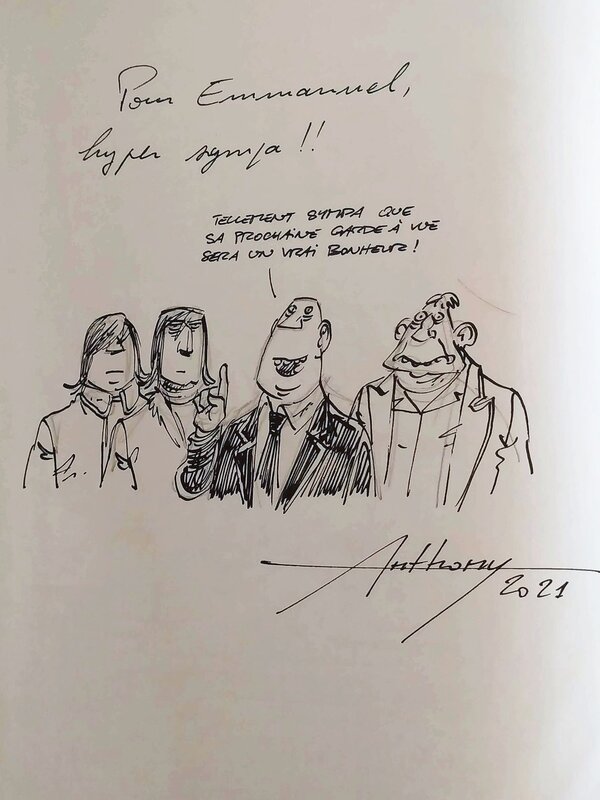 Pour Emmanuel,
hyper sympa !!
TELLEMENT SYMPA QUE
SA PROCHAINE GARDE À VUE
SERA UN VRAI BONHEUR !
Anthony
2021